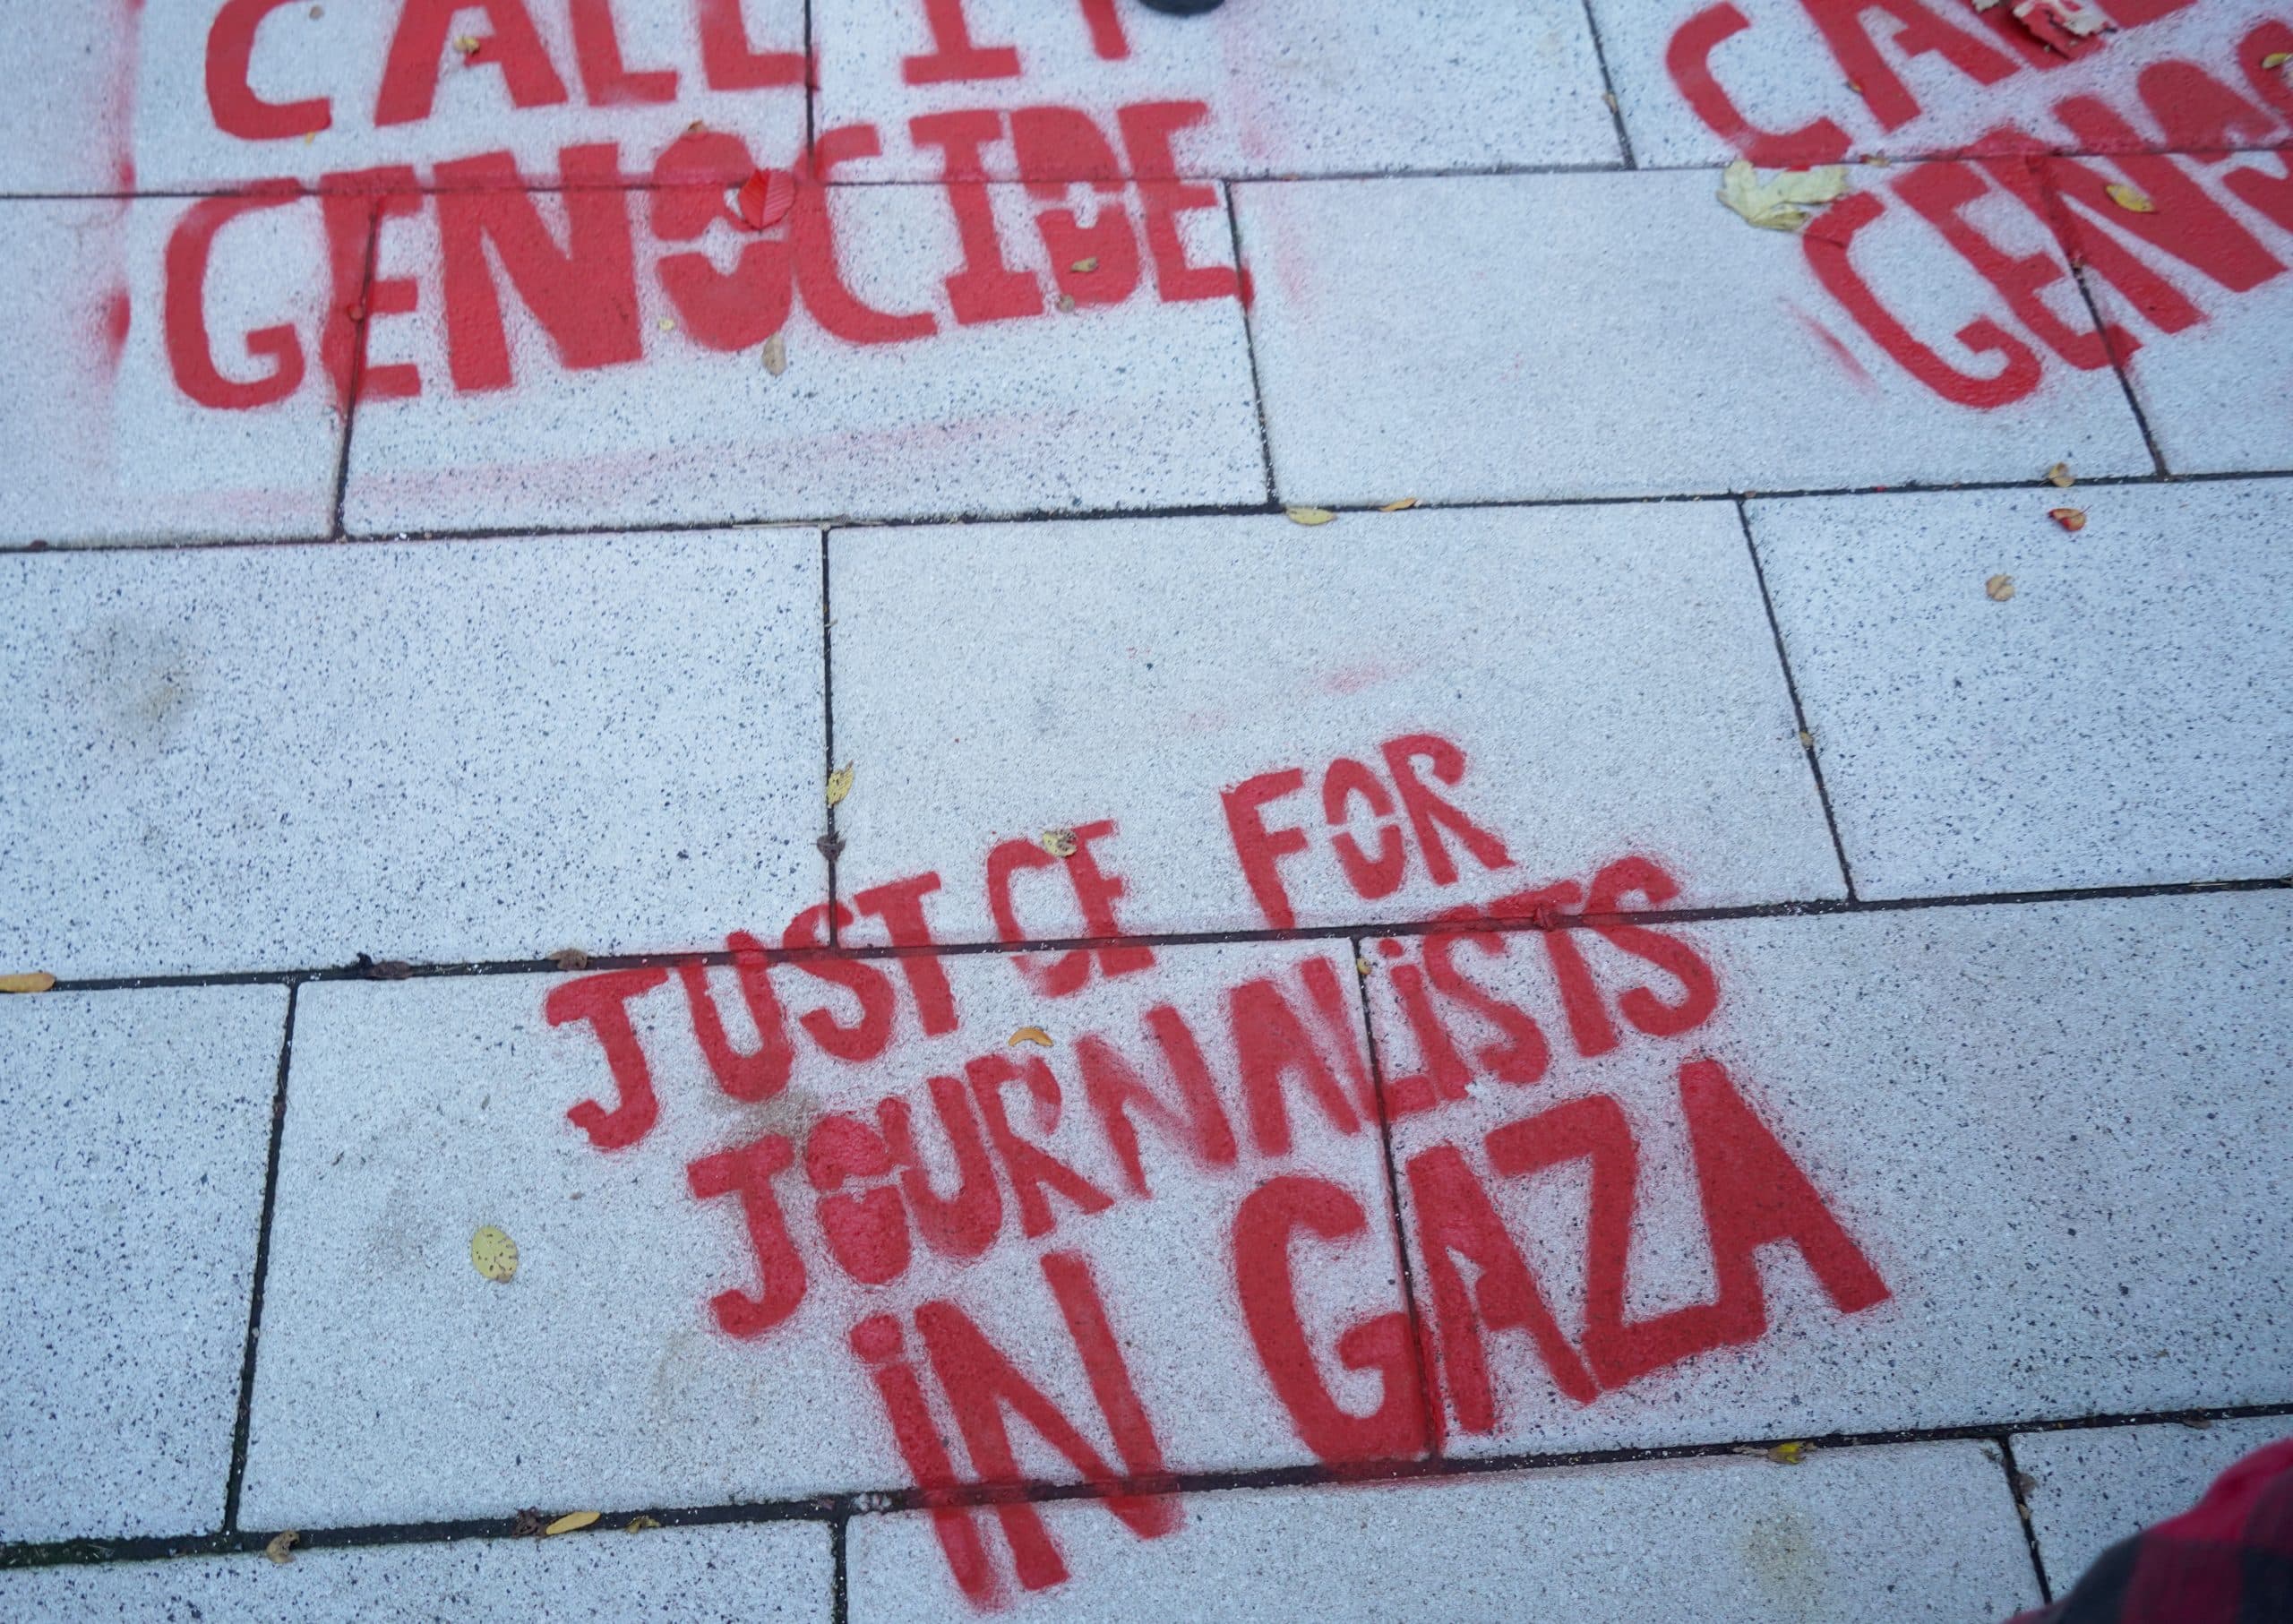 CALL IT
GENOCIDE
CALL
GENO
JUST CE FOR
JOURNALiSTS
iN GAZA